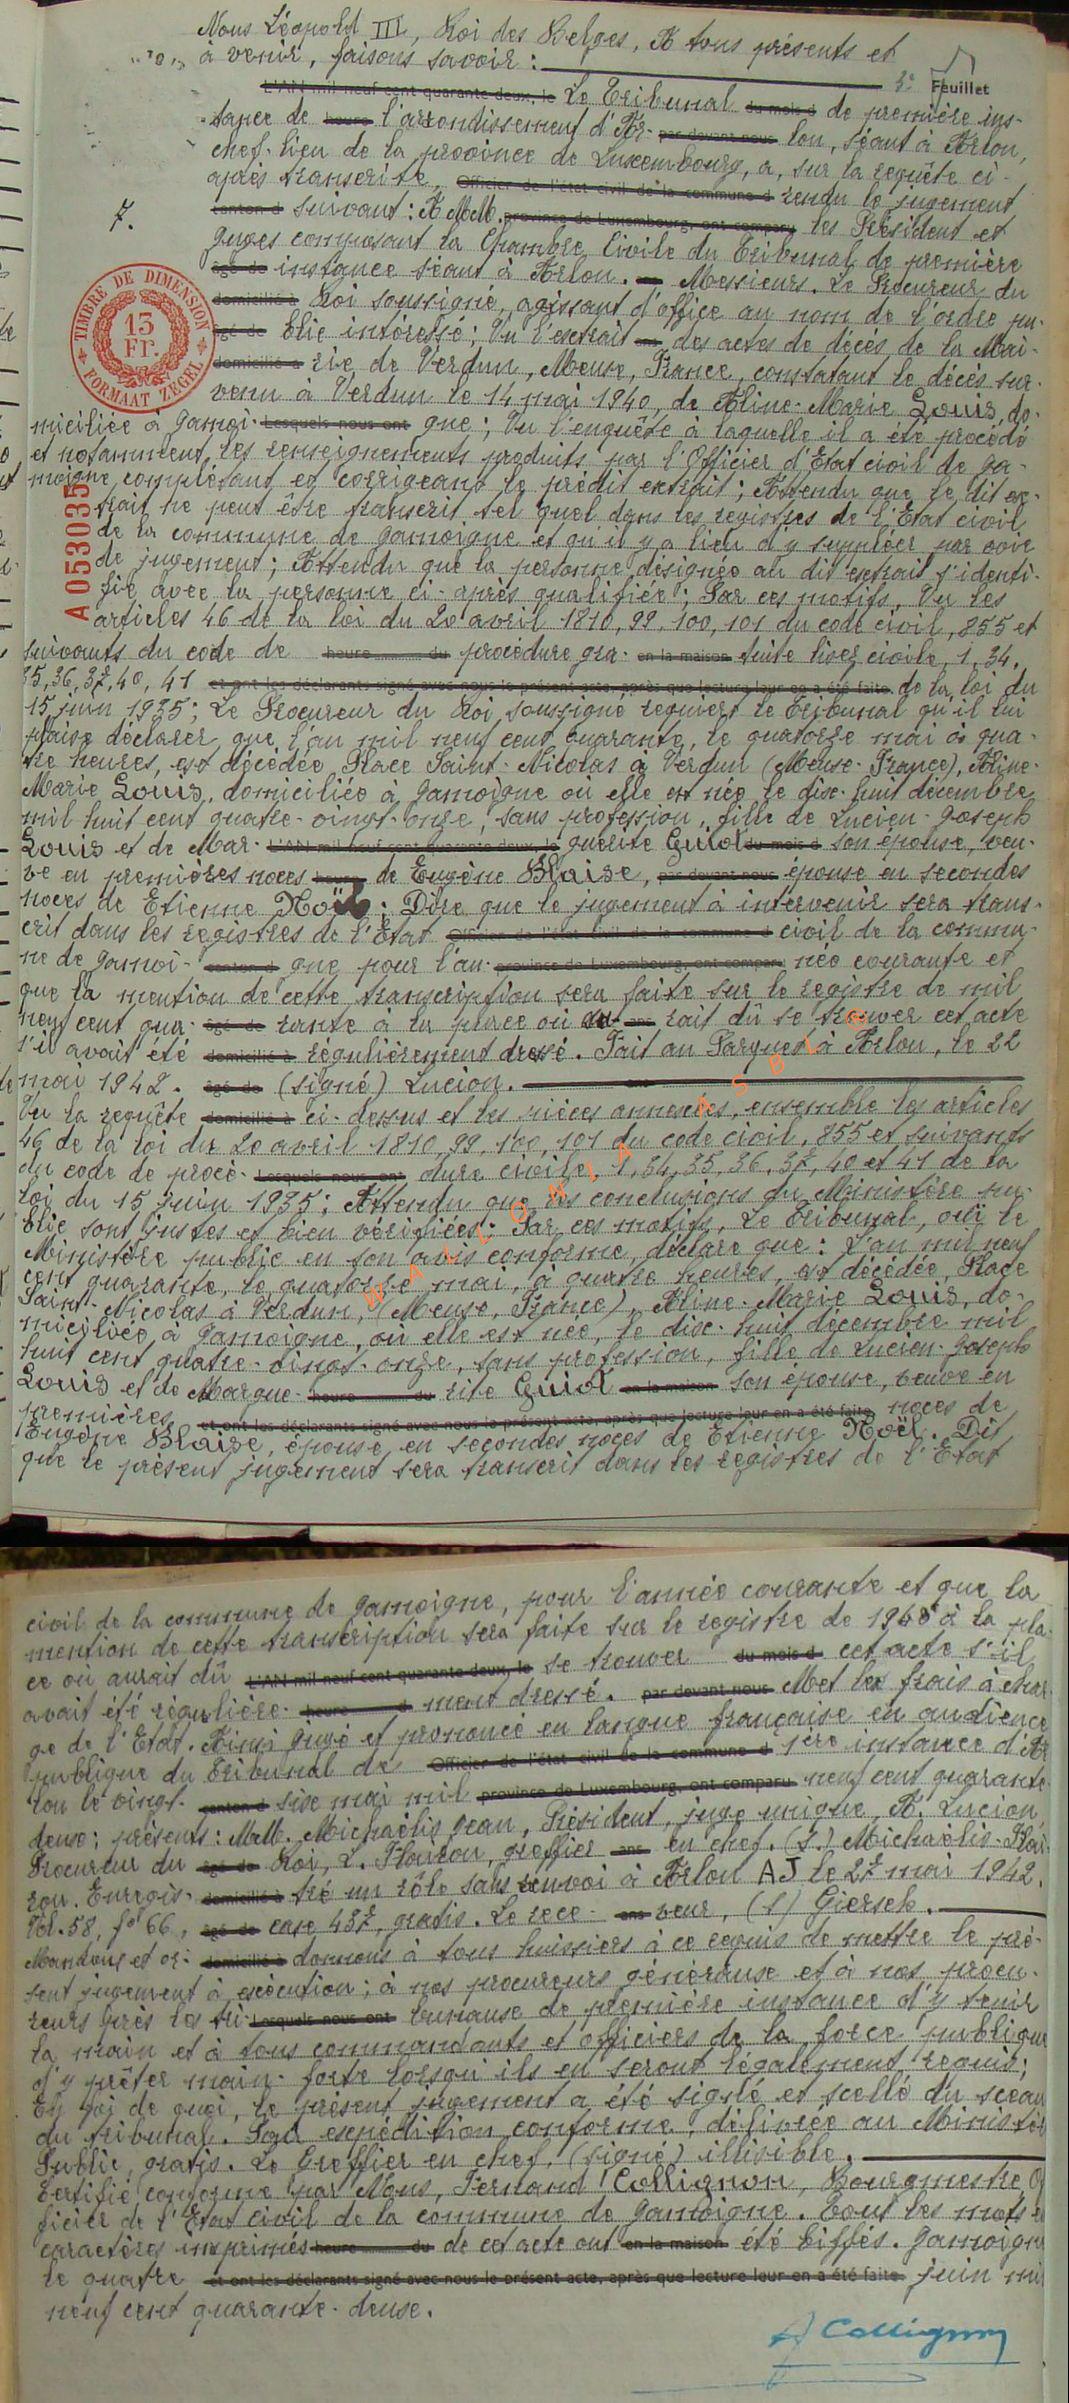 Nous Léopold III, Roi des Belges, A tous présents et
à venir, faisons savoir :
3e Feuillet
L'AN mil neuf cent quarante deux, le Le Tribunal du mois d de première ins-
tance de heure l'arrondissement d'Ar- par devant nous lon, séant à Arlon,
chef-lieu de la province de Luxembourg, a, sur la requête ci-
après transcrite, Officier de l'état civil de la commune d rendu le jugement
7.
canton d suivant : A MM. province de Luxembourg, ont comparu les Président et
Juges composant la Chambre Civile du Tribunal de première
âgé de instance séant à Arlon. Messieurs. Le Procureur du
domicilié à Roi soussigné, agissant d'office au nom de l'ordre pu-
âgé de blic intéressé ; Vu l'extrait ans des actes de décès de la Mai-
domicilié à rie de Verdun, Meuse, France, constatant le décès sur-
venu à Verdun le 14 mai 1940, de Aline-Marie Louis, do-
TIMBRE DE DIMENSION
13
Fr.
FORMAAT ZEGEL
miciliée à Jamoi- Lesquels nous ont gne ; Vu l'enquête à laquelle il a été procédé
et notamment les renseignements produits par l'Officier d'Etat civil de Ja-
moigne, complétant et corrigeant le prédit extrait ; Attendu que le dit ex-
A 053035
trait ne peut être transcrit tel quel dans les registres de l'Etat civil
de la commune de Jamoigne et qu'il y a lieu d'y suppléer par voie
de jugement ; Attendu que la personne désignée au dit extrait s'identi-
fie avec la personne ci-après qualifiée ; Par ces motifs, Vu les
articles 46 de la loi du 20 avril 1810, 99, 100, 101 du code civil, 855 et
suivants du code de heure du procédure gra- en la maison tuite lisez civile, 1, 34,
35, 36, 37, 40, 41 et ont les déclarants signé avec nous le présent acte, après que lecture leur en a été faite. de la loi du
15 juin 1935 ; Le Procureur du Roi soussigné requiert le Tribunal qu'il lui
plaise déclarer que l'an mil neuf cent quarante, le quatorze mai à qua-
tre heures, est décédée, Place Saint-Nicolas à Verdun (Meuse-France), Aline-
Marie Louis, domiciliée à Jamoigne où elle est née le dix-huit décembre
mil huit cent quatre-vingt-onze, sans profession, fille de Lucien-Joseph
Louis et de Mar- L'AN mil neuf cent quarante deux, le guerite Guiot du mois d son épouse, veu-
ve en premières noces heure de Eugène Blaise, par devant nous épouse en secondes
noces de Etienne Noël ; Dire que le jugement à intervenir sera trans-
crit dans les registres de l'Etat Officier de l'état civil de la commune d civil de la commu-
ne de Jamoi- canton d gne pour l'an- province de Luxembourg, ont comparu née courante et
que la mention de cette transcription sera faite sur le registre de mil
neuf cent qua- âgé de rante à la place où au- ans rait dû se trouver cet acte
s'il avait été domicilié à régulièrement dressé. Fait au Parquet à Arlon, le 22
mai 1942. âgé de (signé) Lucion. ans
Vu la requête domicilié à ci-dessus et les pièces annexées, ensemble les articles
46 de la loi du 20 avril 1810, 99, 100, 101 du code civil, 855 et suivants
du code de procé- Lesquels nous ont dure civile, 1, 34, 35, 36, 37, 40 et 41 de la
loi du 15 juin 1935 ; Attendu que les conclusions du Ministère pu-
blic sont justes et bien vérifiées ; Par ces motifs, Le Tribunal, ouï le
Ministère public en son avis conforme, déclare que : l'an mil neuf
cent quarante, le quatorze mai, à quatre heures, est décédée, Place
Saint-Nicolas à Verdun, (Meuse, France), Aline-Marie Louis, do-
miciliée à Jamoigne, où elle est née, le dix-huit décembre mil
huit cent quatre-vingt-onze, sans profession, fille de Lucien-Joseph
Louis et de Margue- heure du rite Guiot en la maison son épouse, veuve en
premières et ont les déclarants signé avec nous le présent acte, après que lecture leur en a été faite. noces de
Eugène Blaise, épouse en secondes noces de Etienne Noël. Dit
que le présent jugement sera transcrit dans les registres de l'Etat
WALLONIA ASBL
civil de la commune de Jamoigne, pour l'année courante et que la
mention de cette transcription sera faite sur le registre de 1940 à la pla-
ce où aurait dû L'AN mil neuf cent quarante deux, le se trouver du mois d cet acte s'il
avait été régulière- heure d ment dressé. par devant nous Met les frais à char-
ge de l'Etat. Ainsi jugé et prononcé en langue française en audience
publique du Tribunal de Officier de l'état civil de la commune d 1ère instance d'Ar
lon le vingt- canton d six mai mil province de Luxembourg, ont comparu neuf cent quarante-
deux ; présents : MM. Michaëlis Jean, Président, juge unique, A. Lucion,
Procureur du âgé de Roi, L. greffier ans en chef. (s.) Michaëlis-
ron. Enregis- domicilié à tré un rôle sans renvoi à Arlon AJ le 27 mai 1942.
Vol. 58, f° 66, âgé de case 437, gratis. Le rece- ans veur, (s) Giersch.
Mandons et or- domicilié à donnons à tous huissiers à ce requis de mettre le pré-
sent jugement à exécution ; à nos procureurs généraux et à nos procu-
reurs près les tri- Lesquels nous ont bunaux de première instance d'y tenir
la main et à tous commandants et officiers de la force publique
d'y prêter main-forte lorsqu'ils en seront légalement requis ;
En foi de quoi, le présent jugement a été signé et scellé du sceau
du tribunal. Pour expédition conforme, délivrée au Ministèr
Public, gratis. Le Greffier en chef, (signé) illisible.
Certifié conforme par Nous, Fernand Collignon, Bourgmestre, Of
ficier de l'Etat civil de la commune de Jamoigne. Tout les mots et
caractères imprimés heure du de cet acte ont en la maison été biffés. Jamoigne
le quatre et ont les déclarants signé avec nous le présent acte, après que lecture leur en a été faite. juin mil
neuf cent quarante-deux.
Collignon